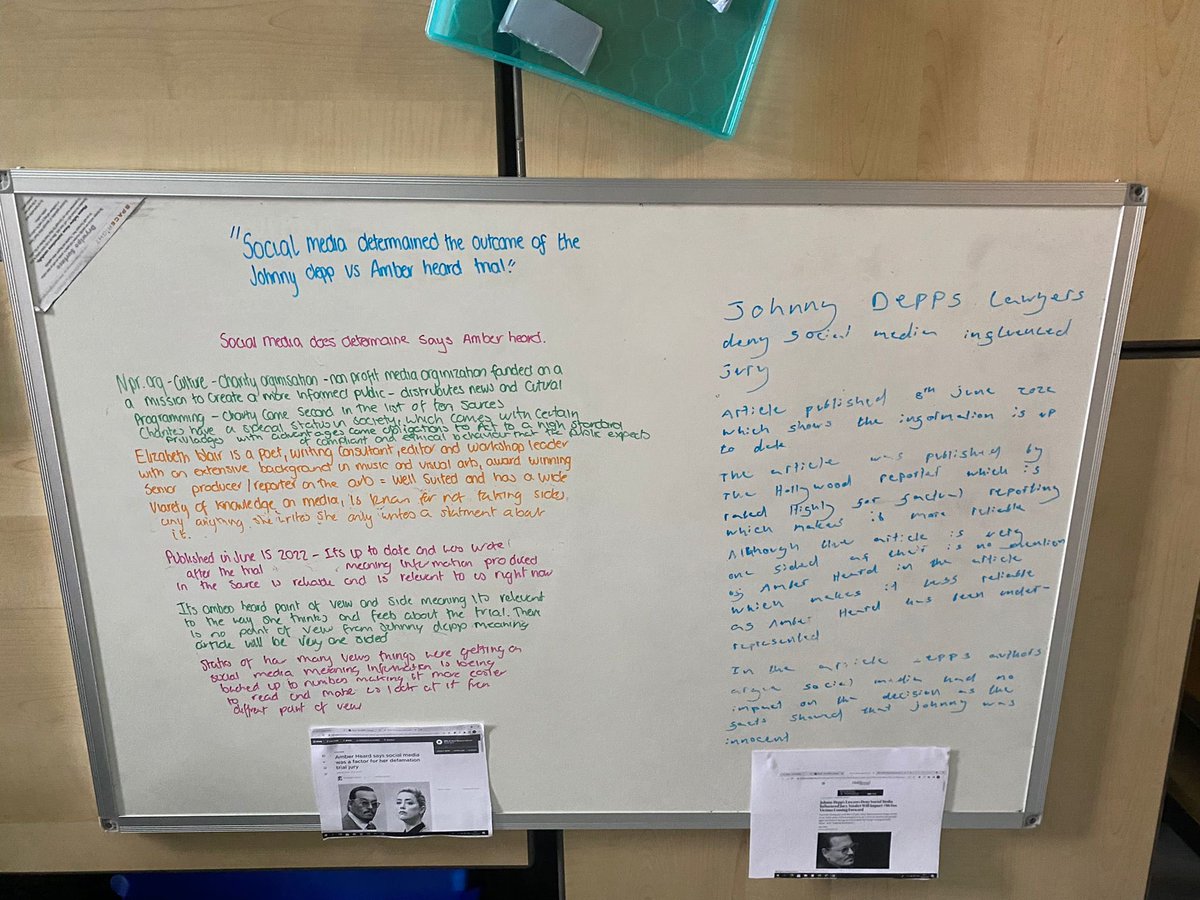 "Social media determained the outcome of the
Johnny depp vs Amber heard trial."
Social media does determaine says Amber heard.
Npr.org - Culture - charity orginisation - non profit media orginization funded on a
a mission to create a more informed public - distrubutes news and cutural
Programming - Charity come second in the list of ten sources
Charites have a special status in society which comes with certain
priviladges with advantages come obligations to act to a high standard
of compliant and ethical behaviour that the public expects
Elizabeth blair is a poet, writing consultant, editor and workshop leader
with an extensive background in music and visual arts, award winning
Senior producer/reporter on the arts = well suited and has a wide
Viarety of knowledge on media, is known for not taking sides.
any anything she writes she only writes a statment about
it.
Published in June 15 2022 - Its up to date and was wrote
after the trial meaning information produced
in the source is reliable and is relevant to us right now
Its amber heard point of veiw and side meaning its relevent
to the way one thinks and feels about the trial. There
is no point of veiw from Johnny depp meaning
article will be very one sided
States of how many veiws things were getting on
social media meaning information is being
backed up to numbers making it more easier
to read and make us look at it from
diffrent point of veiw
Johnny Depps Lawyers
deny social media influenced
jury
Article published 8th june 2022
which shows the information is up
to date
The article was published by
The Hollywood reporter which is
rated Highly for factual reporting
which makes it more reliable
Although the article is very
one sided as their is no mention
of Amber Heard in the article
which makes it less reliable
as Amber Heard has been under-
represented
In the article Depps authors
argue social media had no
impact on the decision as the
facts showed that johnny was
innocent
Amber Heard says social media
was a factor for her defamation
trial jury
Johnny Depp's Lawyers Deny Social Media
Influenced Jury, Verdict Will Impact #MeToo
Victims Coming Forward